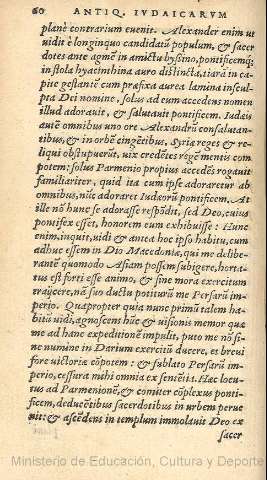 60 ANTIQ. IVDAICARVM
planè contrarium euenit. Alexander enim ut
uidit è longinquo candidatũ populum, & sacer
dotes ante agmẽ in amictu byssino, pontificemq́;
in stola hyacinthina auro distincta, tiara in ca-
pite gestantẽ cum præfixa aurea lamina inscul-
pta Dei nomine, solus ad eum accedens nomen
illud adorauit, & salutauit pontificem. Iudæis
autẽ omnibus uno ore Alexandrũ consalutan-
tibus, & in orbẽ cingẽtibus, Syriæ reges & re-
liqui obstupuerũt, uix credẽtes regẽ mentis com
potem: solus Parmenio propius accedẽs rogauit
familiariter, quid ita cum ipse adoraretur ab
omnibus, nũc adoraret Iudæorũ pontificem. At
ille nõ hunc se adorasse respõdit, sed Deo, cuius
pontifex esset, honorem eum exhibuisse: Hunc
enim, inquit, uidi & antea hoc ipso habitu, cum
adhuc essem in Dio Macedoniæ, qui me delibe-
rantẽ quomodo Asiam possem subigere, horta-
tus est forti esse animo, & sine mora exercitum
traijcere, nã suo ductu potiturũ me Persarũ im-
perio. Quapropter quia nunc primũ talem ha-
bitũ uidi, agnoscens hũc, & uisionis memor quæ
me ad hanc expeditionẽ impulit, puto me nõ si-
ne numine in Darium exercitũ ducere, et breui
fore uictoriæ cõpotem: & sublato Persarũ im-
perio, cessura mihi omnia ex sentẽtia. Hæc locu-
tus ad Parmenionẽ, & comiter cõplexus ponti-
ficem, deducẽtibus sacerdotibus in urbem perue
nit: & ascẽdens in templum immolauit Deo ex
sacer
Ministerio de Educación, Cultura y Deporte